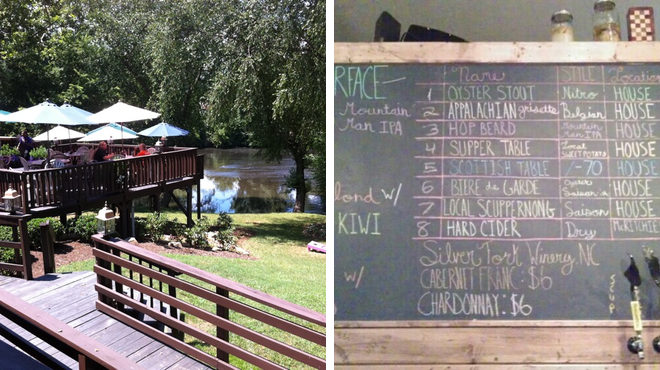 RFACE
Mountain
Man IPA
lond w/
KIWI
w/
Name STYLE Location
1 OYSTER STOUT Nitro HOUSE
2 APPALACHIAN grisette Belgian HOUSE
3 HOP BEARD Mountain Man IPA HOUSE
4 SUPPER TABLE Local SWEET POTATO HOUSE
5 SCOTTISH TABLE /-70 HOUSE
6 BIERE de GARDE HOUSE
7 LOCAL SCUPPERNONG Saison HOUSE
8 HARD CIDER Dry McRITCHIE
Silver Fork Winery, NC
CABERNET FRANC: $6
CHARDONNAY: $6